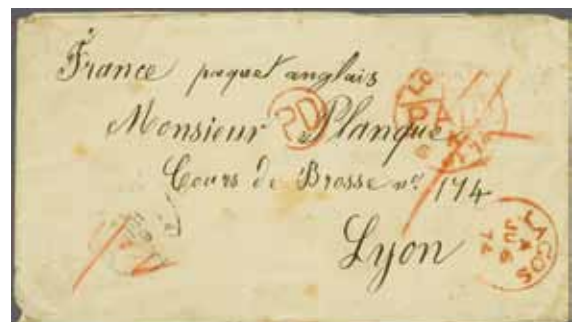 France paquet anglais
PAID
PD
Monsieur Planque
Cours de Brosse no. 174
Lyon
LAGOS
A
JU 6
74